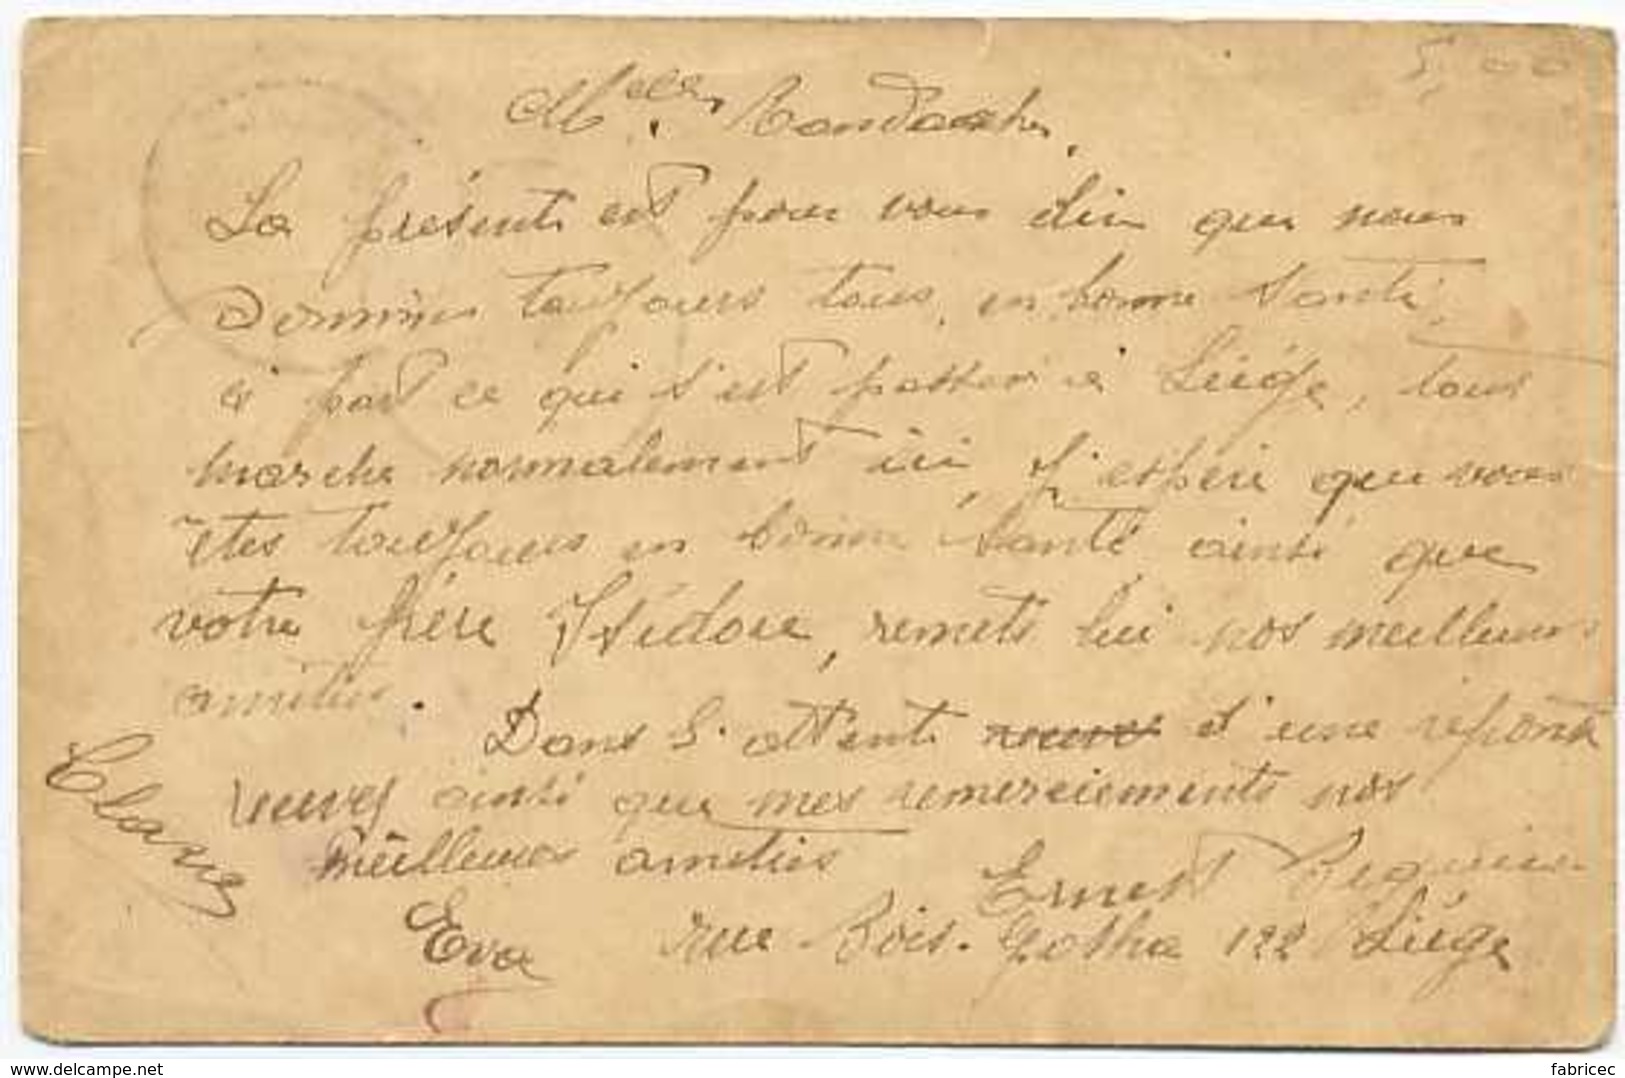 5,00
La présente est pour vous dire que nous
sommes toujours tous, en bonne santé,
à part ce qui s'est passer à Liége, tous
marche normalement ici, j'espère que vous
êtes toujours en bonne santé ainsi que
votre frère Isidore, remets lui nos meilleures
amitiés.
Dans l'attente d'une réponse
recevez ainsi que mes remerciements nos
meilleures amitiés
Ernest
Eva rue Bois-Gotha 122 Liége
delcampe.net
fabricec